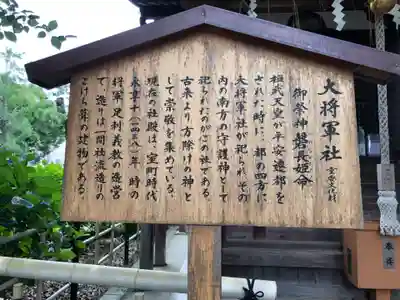 大将軍社 重要文化財
御祭神 磐長姫命
桓武天皇が平安遷都を
された時に、都の四方に
大将軍社が祀られその
内の南方の守護神として
祀られたのがこの社である。
古来より方除けの神と
して崇敬を集めている。
現在の社殿は、室町時代
永享十(一四三八)年時の
将軍足利義教の造営
で、造りは一間社流造りの
こけら葺の建物である。
奉納